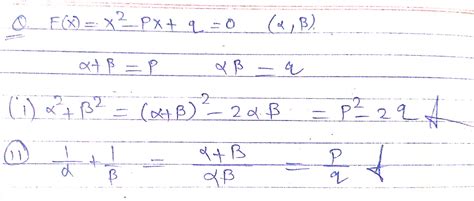 Q F(x) = x² - Px + q = 0 (α, β)
α+β = P αβ = q
(i) α² + β² = (α+β)² - 2αβ = P² - 2q
(ii) 1/α + 1/β = α+β/αβ = P/q